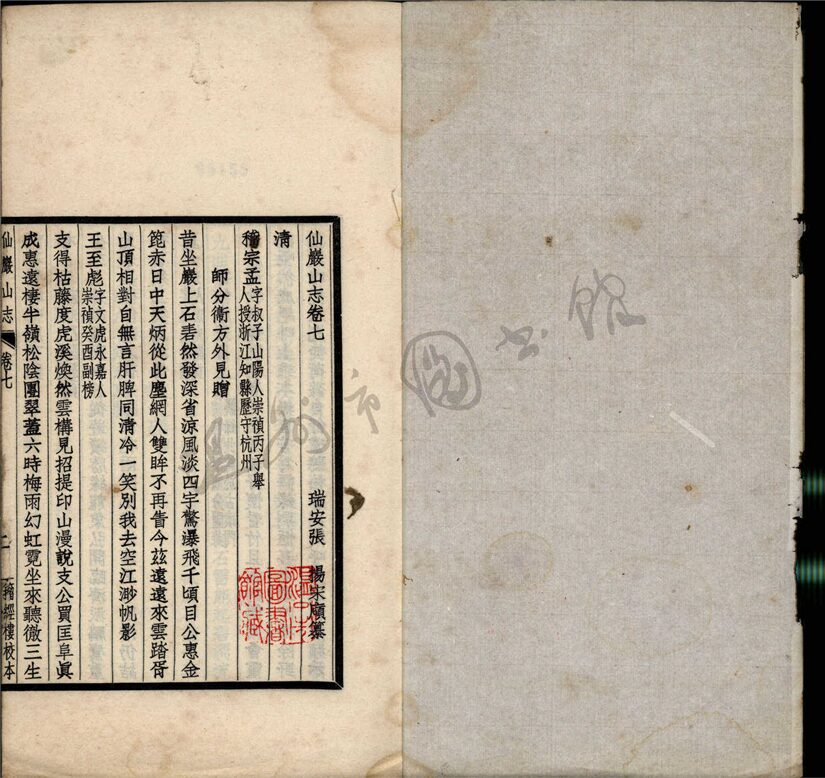 仙巖山志卷七
瑞安張 揚宋廎纂
清
嵇宗孟字叔子山陽人崇禎丙子舉人授浙江知縣歷守杭州
師分衞方外見贈
昔坐巖上石砉然發深省涼風淡四字驚瀑飛千頃目公惠金
篦赤日中天炳從此塵網人雙眸不再眚今茲遠遠來雲踏胥
山頂相對自無言肝脾同清冷一笑別我去空江渺帆影
王至彪字文虎永嘉人崇禎癸酉副榜
支得枯藤度虎溪煥然雲構見招提印山漫說支公買匡阜眞
成惠遠棲半嶺松陰團翠蓋六時梅雨幻虹霓坐來聽徹三生
仙巖山志
卷七
一
籀經樓校本
溫州市圖書館
溫州市圖書館藏